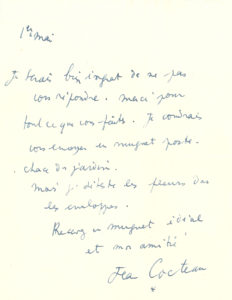 1er mai
Je serais bien ingrat de ne pas
vous répondre. merci pour
tout ce que vous faites. Je voudrais
vous envoyer un muguet porte-
chance du jardin.
mais je déteste les fleurs dans
les enveloppes.
Recevez un muguet idéal
et mon amitié
Jean Cocteau
*